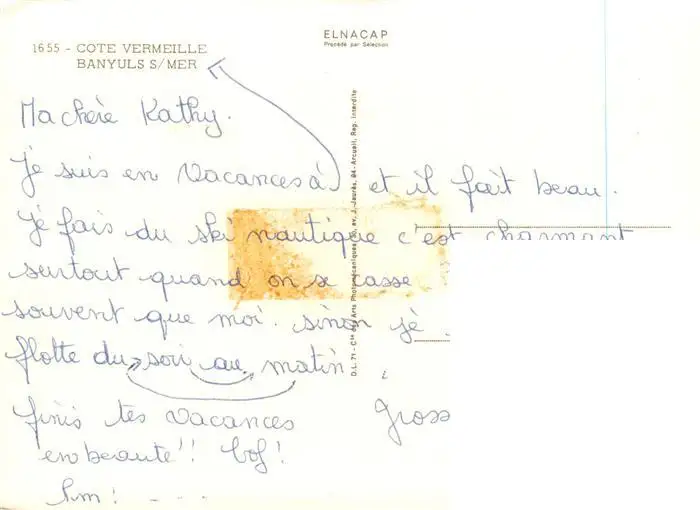 ELNACAP
Procédé par Sélection
1655 - COTE VERMEILLE
BANYULS S/MER
Ma chère Kathy.
Je suis en vacances à et il fait beau.
Je fais du ski nautique c'est charmant
surtout quand on se casse
souvent que moi. sinon je
flotte du soir au matin
finis tes vacances
en beauté!! bof!
Gross
D.L. 71 - Cie des Arts Photomécaniques, av. J.-Jaurès, 94 - Arcueil, Rep. Interdite